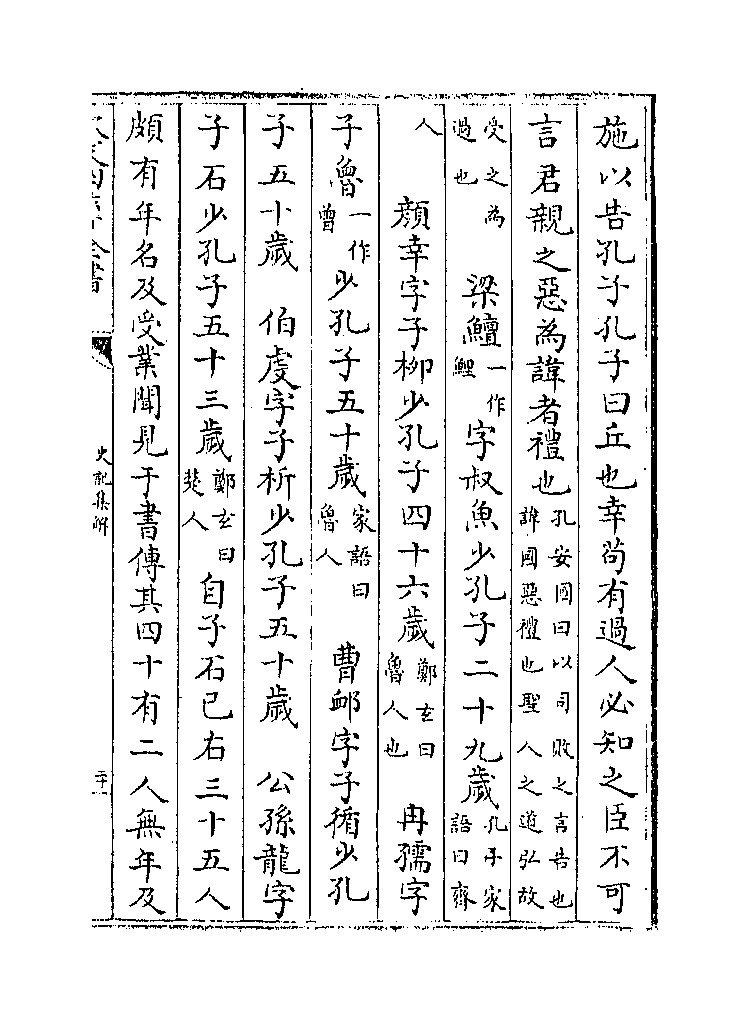 施以告孔子孔子曰丘也幸茍有過人必知之臣不可
言君親之惡為諱者禮也孔安國曰以司敗之言告也諱國惡禮也聖人之道弘故
受之為過也　梁鱣一作鯉字叔魚少孔子二十九歲孔子家語曰齊
人　顔幸字子栁少孔子四十六歲鄭玄曰魯人也　冉孺字
子魯一作曾少孔子五十歲家語曰魯人　曹䘏字子循少孔
子五十歲　伯䖍字子析少孔子五十歲　公孫龍字
子石少孔子五十三歲鄭玄曰楚人自子石已右三十五人
頗有年名及受業聞見于書傳其四十有二人無年及
史記集解